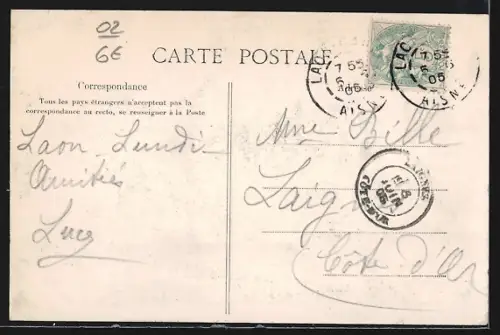 02
6E
CARTE POSTALE
Correspondance
Tous les pays étrangers n'acceptent pas la
correspondance au recto, se renseigner à la Poste
Laon Lundi
Amitiés
Lucy
LAO
7 55
5 6
05
AISNE
LAO
7 55
5 6
05
AISNE
Mme Bille
Laignes
Côte d'Or
LAIGNES
6
JUIN
05
CÔTE-D'OR